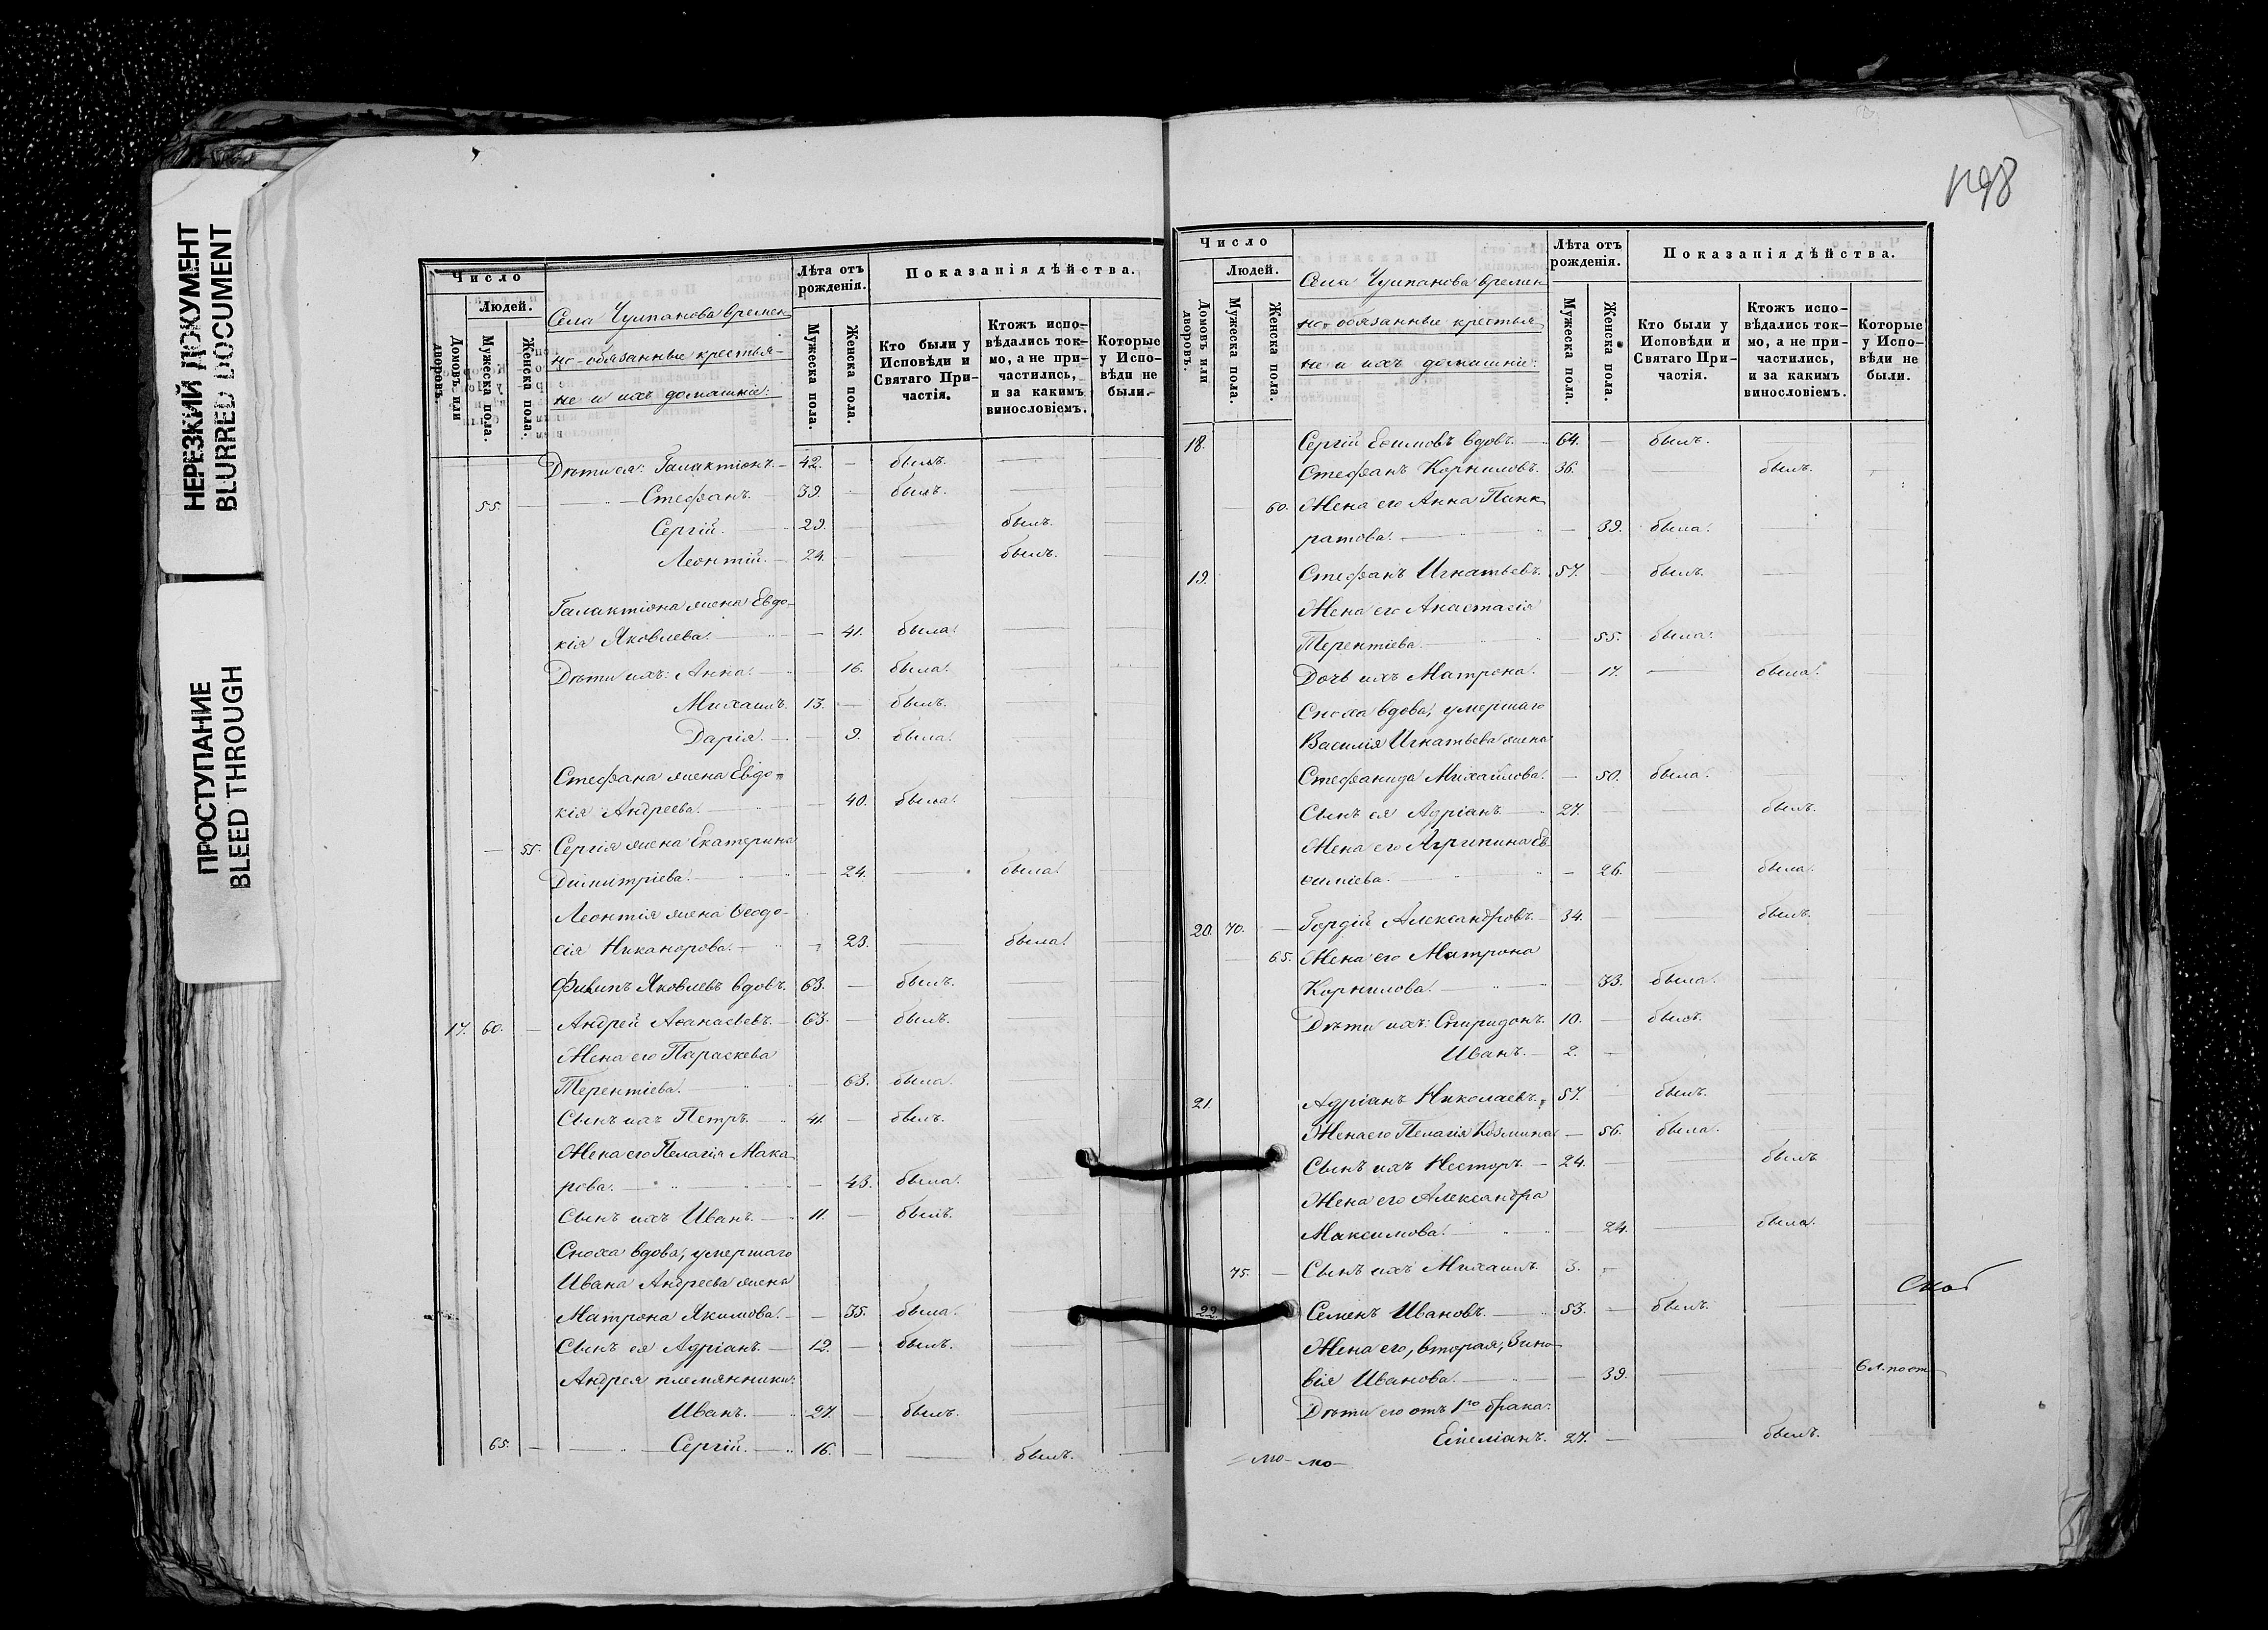 НЕРЕЗКИЙ ДОКУМЕНТ
BLURRED DOCUMENT
ПРОСТУПАНИЕ
BLEED THROUGH
Число
Людей.
Домовъ или дворовъ.
Мужеска пола.
Женска пола.
Села Чулпанова времен
но-обязанные крестья-
не и ихъ домашніе:
Лѣта отъ рожденія.
Мужеска пола.
Женска пола.
Показанія дѣйства.
Кто были у Исповѣди и Святаго Причастія.
Ктожъ исповѣдались токмо, а не причастились, и за какимъ винословіемъ.
Которые у Исповѣди не были.
Дѣти ея: Галактіонъ. 42. — былъ. —
55. — Стефанъ. 39. — былъ. —
Сергій. 29. — — былъ.
Леонтій. 24. — — былъ. —
Галактіона жена Евдо-
кія Яковлева. — 41. была. —
Дѣти ихъ: Анна. — 16. была. —
Михаилъ. 13. — былъ. —
Дарія. — 9. была. —
Стефана жена Евдо-
кія Андреева. — 40. была. —
— 55. Сергія жена Екатерина
Димитріева. — 24. — была.
Леонтія жена Ѳеодо-
сія Никанорова. — 23. — была.
Филипъ Яковлевъ вдовъ. 63. — былъ. —
17. 60. — Андрей Аѳанасьевъ. 63. — былъ. —
Жена его Параскева
Терентіева. — 63. была. —
Сынъ ихъ Петръ. 41. — былъ. —
Жена его Пелагія Мака-
рова. — 43. была. —
Сынъ ихъ Иванъ. 11. — былъ. —
Сноха вдова, умершаго
Ивана Андреева жена
Матрона Якимова. — 35. была. —
Сынъ ея Адріанъ. 12. — былъ. —
Андрея племянники:
Иванъ. 27. — былъ. —
65. — Сергій. 16. — — былъ. —
1298
Число
Людей.
Домовъ или дворовъ.
Мужеска пола.
Женска пола.
Села Чулпанова времен
но-обязанные крестья
не и ихъ домашніе:
Лѣта отъ рожденія.
Мужеска пола.
Женска пола.
Показанія дѣйства.
Кто были у Исповѣди и Святаго Причастія.
Ктожъ исповѣдались токмо, а не причастились, и за какимъ винословіемъ.
Которые у Исповѣди не были.
18. Сергій Еѳимовъ вдовъ. 64. — былъ.
Стефанъ Корниловъ. 36. — былъ.
— 60. Жена его Анна Панк
ратова. — 39. была. —
19. Стефанъ Игнатьевъ. 57. — былъ. —
Жена его Анастасія
Терентіева. — 55. была. —
Дочь ихъ Матрона. — 17. — была.
Сноха вдова, умершаго
Василія Игнатьева жена
Стефанида Михайлова. — 50. была. —
Сынъ ея Адріанъ. 27. — — былъ.
Жена его Агрипина Ев
ѳиміева. — 26. — была.
20. 70. — Гордій Александровъ. 34. — — былъ.
— 65. Жена его Матрона
Корнилова. — 33. была. —
Дѣти ихъ: Спиридонъ. 10. — былъ. —
Иванъ. 2. —
21. Адріанъ Николаевъ. 57. былъ. —
Жена его Пелагія Козмина — 56. была. —
Сынъ ихъ Несторъ. 24. — былъ
Жена его Александра
Максимова. — 24. — была.
75. — Сынъ ихъ Михаилъ. 3. —
22. Семенъ Ивановъ. 53. — былъ.
Жена его, вторая, Зино-
вія Иванова. — 39. — — 6 л. по от
Дѣти его отъ 1го брака:
Емеліанъ. 27. — — былъ. —